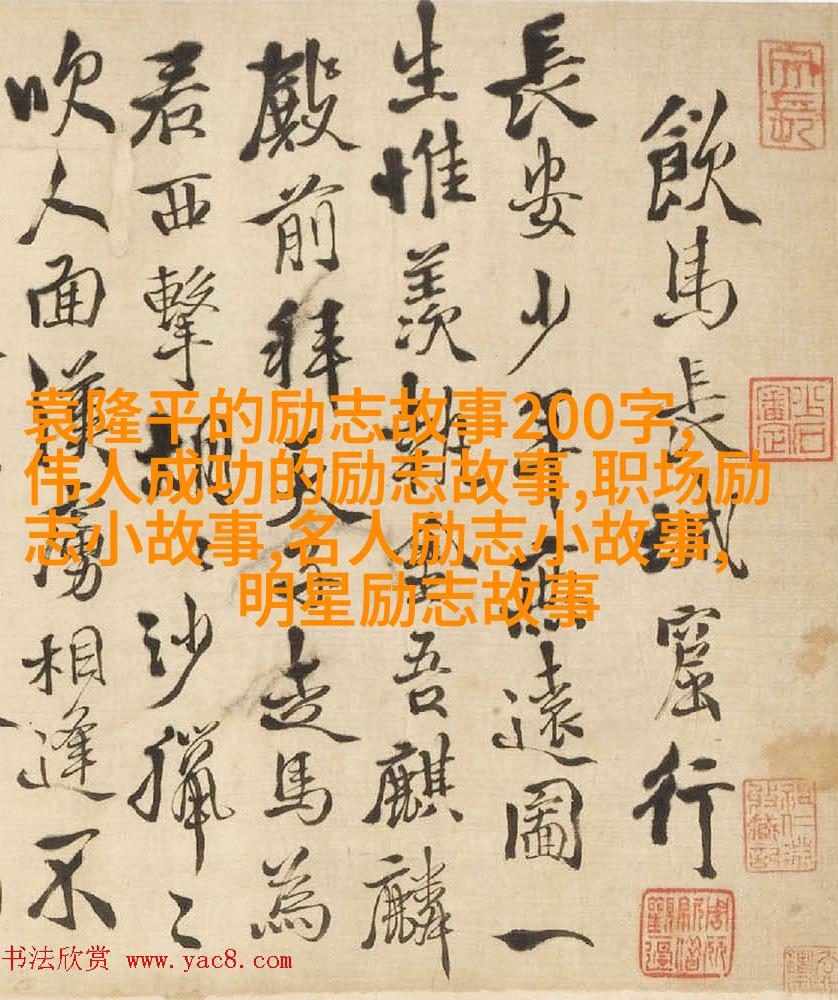 飲馬長城窟行
長安少年無遠圖一
生惟羨執金吾麒麟
殿前拜天子走馬為
君西擊胡〻沙獵〻
吹人面漢虜相逢不
袁隆平的励志故事200字,
伟人成功的励志故事,职场励
志小故事,名人励志小故事,
明星励志故事
书法欣赏 www.yac8.com